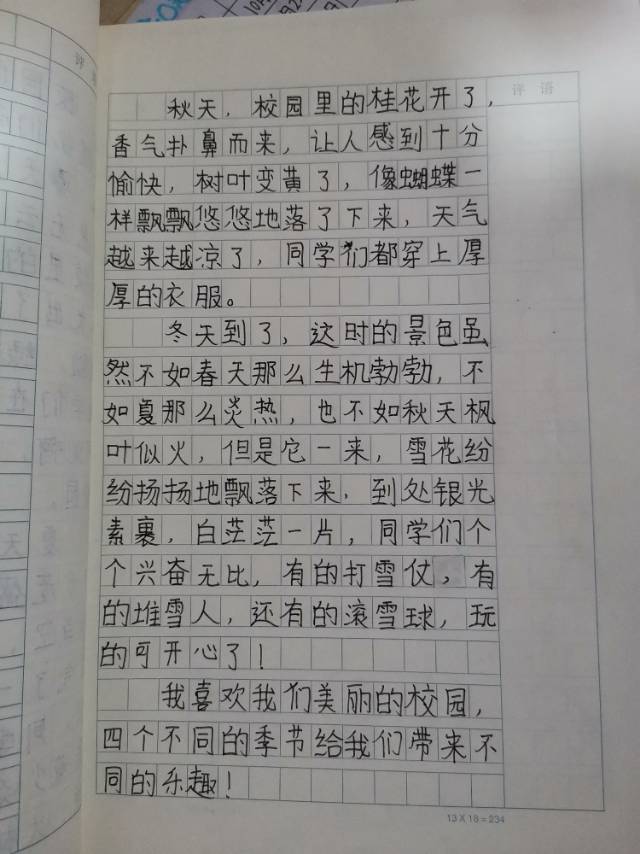 评语
秋天，校园里的桂花开了，
香气扑鼻而来，让人感到十分
愉快，树叶变黄了，像蝴蝶一
样飘飘悠悠地落了下来，天气
越来越凉了，同学们都穿上厚
厚的衣服。
冬天到了，这时的景色虽
然不如春天那么生机勃勃，不
如夏那么炎热，也不如秋天枫
叶似火，但是它一来，雪花纷
纷扬扬地飘落下来，到处银光
素裹，白茫茫一片，同学们个
个兴奋无比，有的打雪仗，有
的堆雪人，还有的滚雪球，玩
的可开心了！
我喜欢我们美丽的校园，
四个不同的季节给我们带来不
同的乐趣！
13×18=234